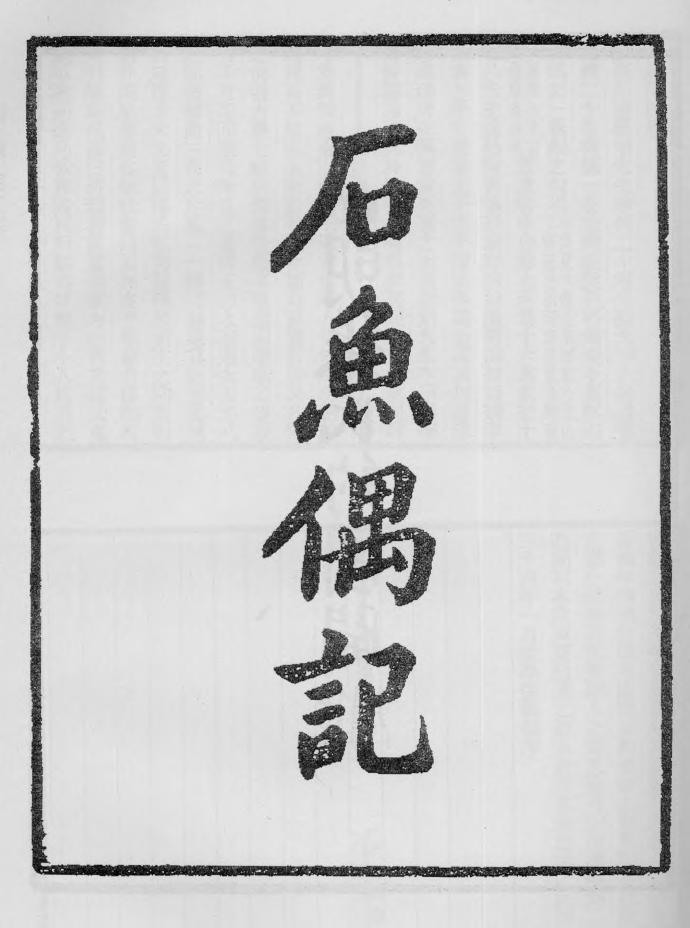 石魚偶記